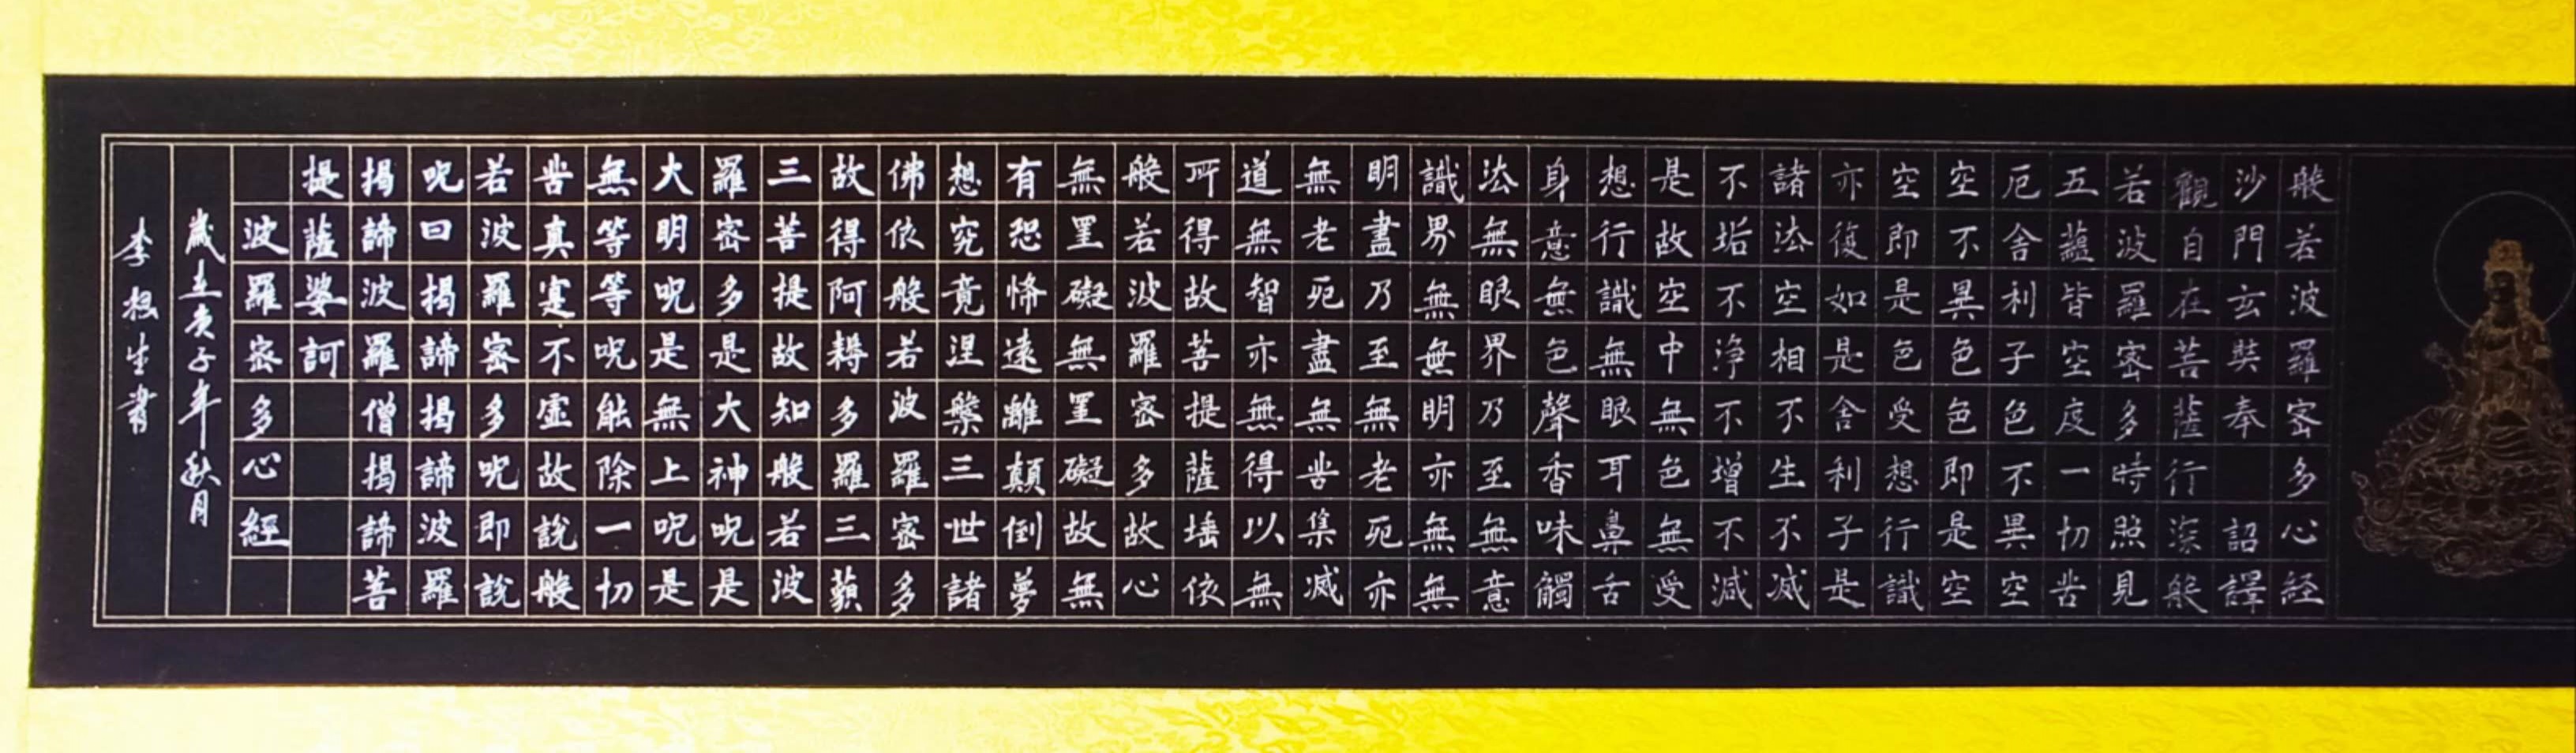 般若波羅密多心経
沙門玄奘奉 詔譯
觀自在菩薩行深般
若波羅密多時照見
五蘊皆空度一切苦
厄舍利子色不異空
空不異色色即是空
空即是色受想行識
亦復如是舍利子是
諸法空相不生不滅
不垢不淨不增不減
是故空中無色無受
想行識無眼耳鼻舌
身意無色聲香味觸
法無眼界乃至無意
識界無無明亦無無
明盡乃至無老死亦
無老死盡無苦集滅
道無智亦無得以無
所得故菩提薩埵依
般若波羅密多故心
無罣礙無罣礙故無
有恐怖遠離顛倒夢
想究竟涅槃三世諸
佛依般若波羅密多
故得阿耨多羅三藐
三菩提故知般若波
羅密多是大神呪是
大明呪是無上呪是
無等等呪能除一切
苦真寔不虛故說般
若波羅密多呪即說
呪曰揭諦揭諦波羅
揭諦波羅僧揭諦菩
提薩婆訶
波羅密多心經
歲在庚子年秋月
李根生書